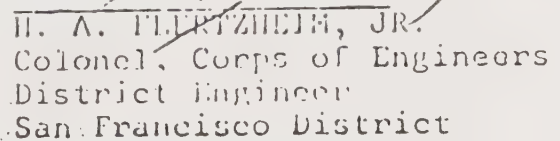 H. A. FLERTZHEIM, JR.
Colonel, Corps of Engineers
District Engineer
San Francisco District